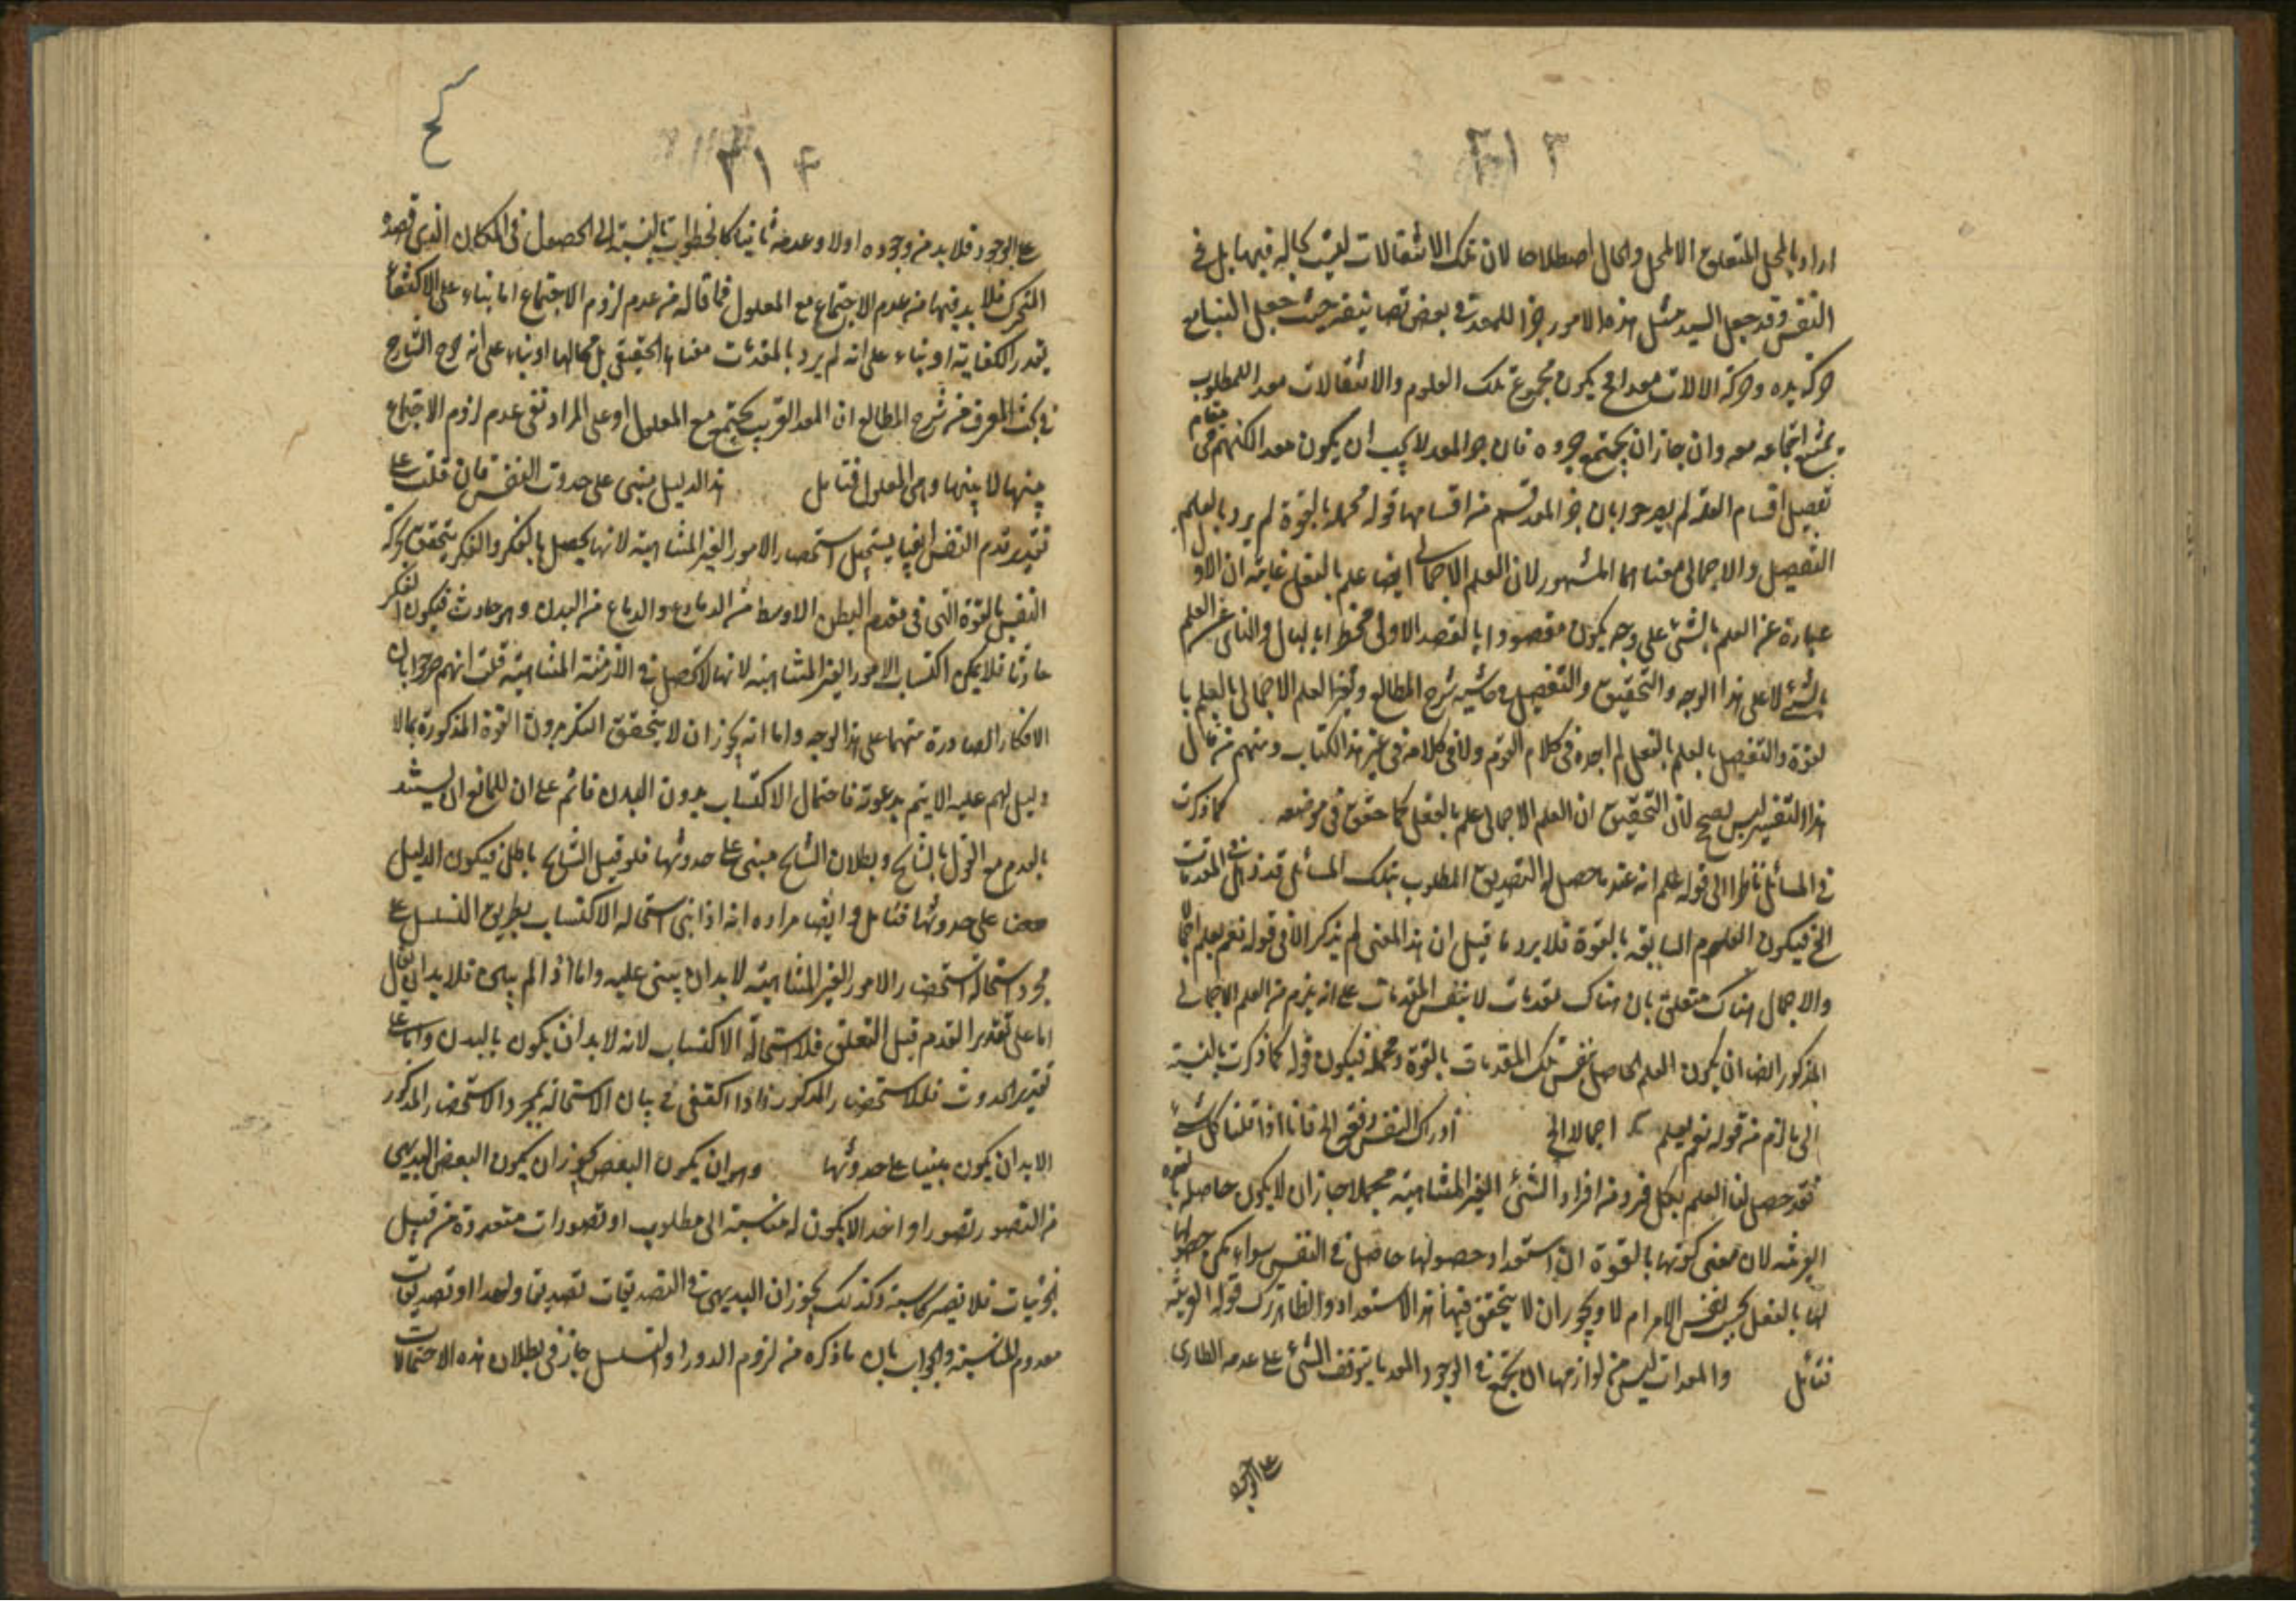 ٣١٣
اراد بالمحل المتعلق الا المحل والحال اصطلاحا لان تلك الانتقالات ليست بحالة فيها بل في
النفس وقد جعل السيد مثل هذه الامور جزا للمعد في بعض تصانيفه حيث جعل البناء مع
حركة يده وحركة الالات معدا فح يكون مجموع تلك العلوم والانتقالات معدا للمطلوب
يمتنع اجتماعه معه وان جاز ان يجتمع جزوه فان جزا المعد لا يجب ان يكون معدا لكنهم في مقام
تفصيل اقسام العلة لم يصرحوا بان جزا المعد قسم من اقسامها قوله مجملة بالقوة لم يرد بالعلم
التفصيلي والاجمالي معناهما المشهور لان العلم الاجمالي ايضا علم بالفعل غايته ان الاول
عبارة عن العلم بالشئ على وجه يكون مقصودا بالقصد الاولى مخطرا بالبال والثاني عن العلم
بالشئ لا على هذا الوجه والتحقيق والتفصيل في حاشية شرح المطالع وتفسير العلم الاجمالي بالعلم با
لقوة والتفصيلي بالعلم بالفعل لم اجده في كلام القوم ولا في كلامه في غير هذا الكتاب ومنهم من قال
هذا التفسير ليس بصحيح لان التحقيق ان العلم الاجمالي علم بالفعل كما حقق في موضعه كما ذكرت
في المسائل ناظرا الى قوله نعلم انه عند ما حصل له التصديق المطلوب بتلك المسائل قد ذهل المقدمات
الخ فيكون العلوم السابقة بالقوة فلا يرد ما قيل ان هذا المعنى لم يذكر الا في قوله نعم يعلم اجمالا
والاجمال هناك متعلق بان هناك مقدمات لا بنفس المقدمات على انه يلزم من العلم الاجمالي
المذكور ايضا ان يكون العلم الحاصل بنفس تلك المقدمات بالقوة ومجملة فيكون قوله كما ذكرت بالنسبة
الى ما لزم من قوله نعم يعلم اجمالا الخ ادراك النفس دفعة الخ فانا اذا قلنا كل شئ
فقد حصل لنا العلم بكل فرد من افراد الشئ الغير المتناهية مجملا جاز ان لا يكون حاصله بالقوة
القريبة لان معنى كونها بالقوة ان استعداد حصولها حاصل في النفس سواء يمكن حصولها
لها بالفعل بحسب نفس الامر ام لا ويجوز ان لا يتحقق فيها هذا الاستعداد والظاهر ترك قوله القريبة
فتامل والمعدات ليس من لوازمها ان تجتمع في الوجود المعد ما يتوقف الشئ على عدمه الطارى
على الوجود
كح
٣١٤
على الوجود فلا بد من وجوده اولا وعدمه ثانيا كالخطوات بالنسبة الى الحصول في المكان الذى قصده
المتحرك فلا بد فيها من عدم الاجتماع مع المعلول فما قاله من عدم لزوم الاجتماع اما بناء على الاكتفاء
بقدر الكفاية او بناء على انه لم يرد بالمعدات معناها الحقيقي بل محالها او بناء على انه صرح الشارح
في بحث المعرف من شرح المطالع ان المعد القريب يجتمع مع المعلول او على المراد نفى عدم لزوم الاجتماع
بينها لا بينها وبين المعلول فتامل هذا الدليل مبنى على حدوث النفس فان قلت على
تقدير قدم النفس ايضا يستحيل استحضار الامور الغير المتناهية لانها يحصل بالفكر والفكر يتحقق بحركة
النفس بالقوة التى فى مقدم البطن الاوسط من الدماغ والدماغ من البدن وهو حادث فيكون الفكر
حادثا فلا يمكن اكتساب الامور الغير المتناهية لانها لا تحصل في الازمنة المتناهية قلت انهم صرحوا بان
الافكار الصادرة منهما على هذا الوجه واما انه يجوز ان لا يتحقق الفكر بدون القوة المذكورة مما لا
دليل لهم عليه الا يتم بدعوته فاحتمال الاكتساب بدون البدن قائم على ان للمانع ان يستند
بالعدم مع القول بالتناسخ وبطلان التناسخ مبنى على حدوثها فلو قيل التناسخ باطل فيكون الدليل
مبنيا على حدوثها فتامل وايضا مراده انه اذا بنى استحالة الاكتساب بطريق التسلسل على
مجرد استحالة استحضار الامور الغير المتناهية لا بد ان يبنى عليه واما اذا لم يبن فلا بد ان يقال
اما على تقدير القدم قبل التعلق فلاستحالة الاكتساب لانه لا بد ان يكون بالبدن واما على
تقدير الحدوث فلاستحضار المذكور فاذا اكتفى في بيان الاستحالة بمجرد الاستحضار المذكور
لا بد ان يكون مبنيا على حدوثها وهو ان يكون البعض يجوز ان يكون البعض البديهى
من التصور تصورا واحدا لا يكون له مناسبة الى مطلوب او تصورات متعددة من قبيل
الجزئيات فلا تصير كاسبة وكذلك يجوز ان البديهى من التصديقات تصديقا واحدا او تصديقات
معدوم المناسبة والجواب بان ما ذكره من لزوم الدور او التسلسل جاز فى بطلان هذه الاحتمالات